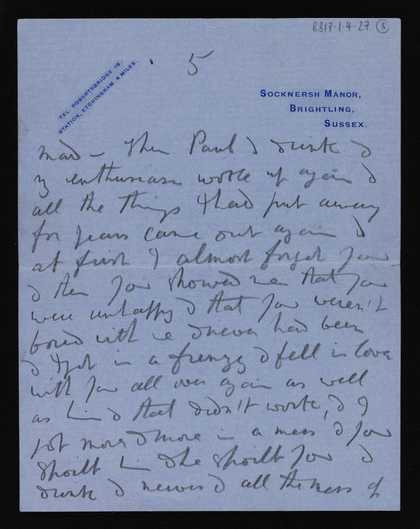 BB17.1.4.27 (5)
5
TEL. ROBERTSBRIDGE 19.
STATION, ETCHINGHAM, 4 MILES.
SOCKNERSH MANOR,
BRIGHTLING,
SUSSEX.
mad – Then Paul & drink &
my enthusiasm woke up again &
all the things I had put away
for years came out again &
at first I almost forgot you
& then you showed me that you
were unhappy & that you weren't
bored with me & never had been
& I got in a frenzy & fell in love
with you all over again as well
as & that didn't work, & I
got more & more in a mess & you
spoilt & she spoilt you &
drink & nerves & all the mess of